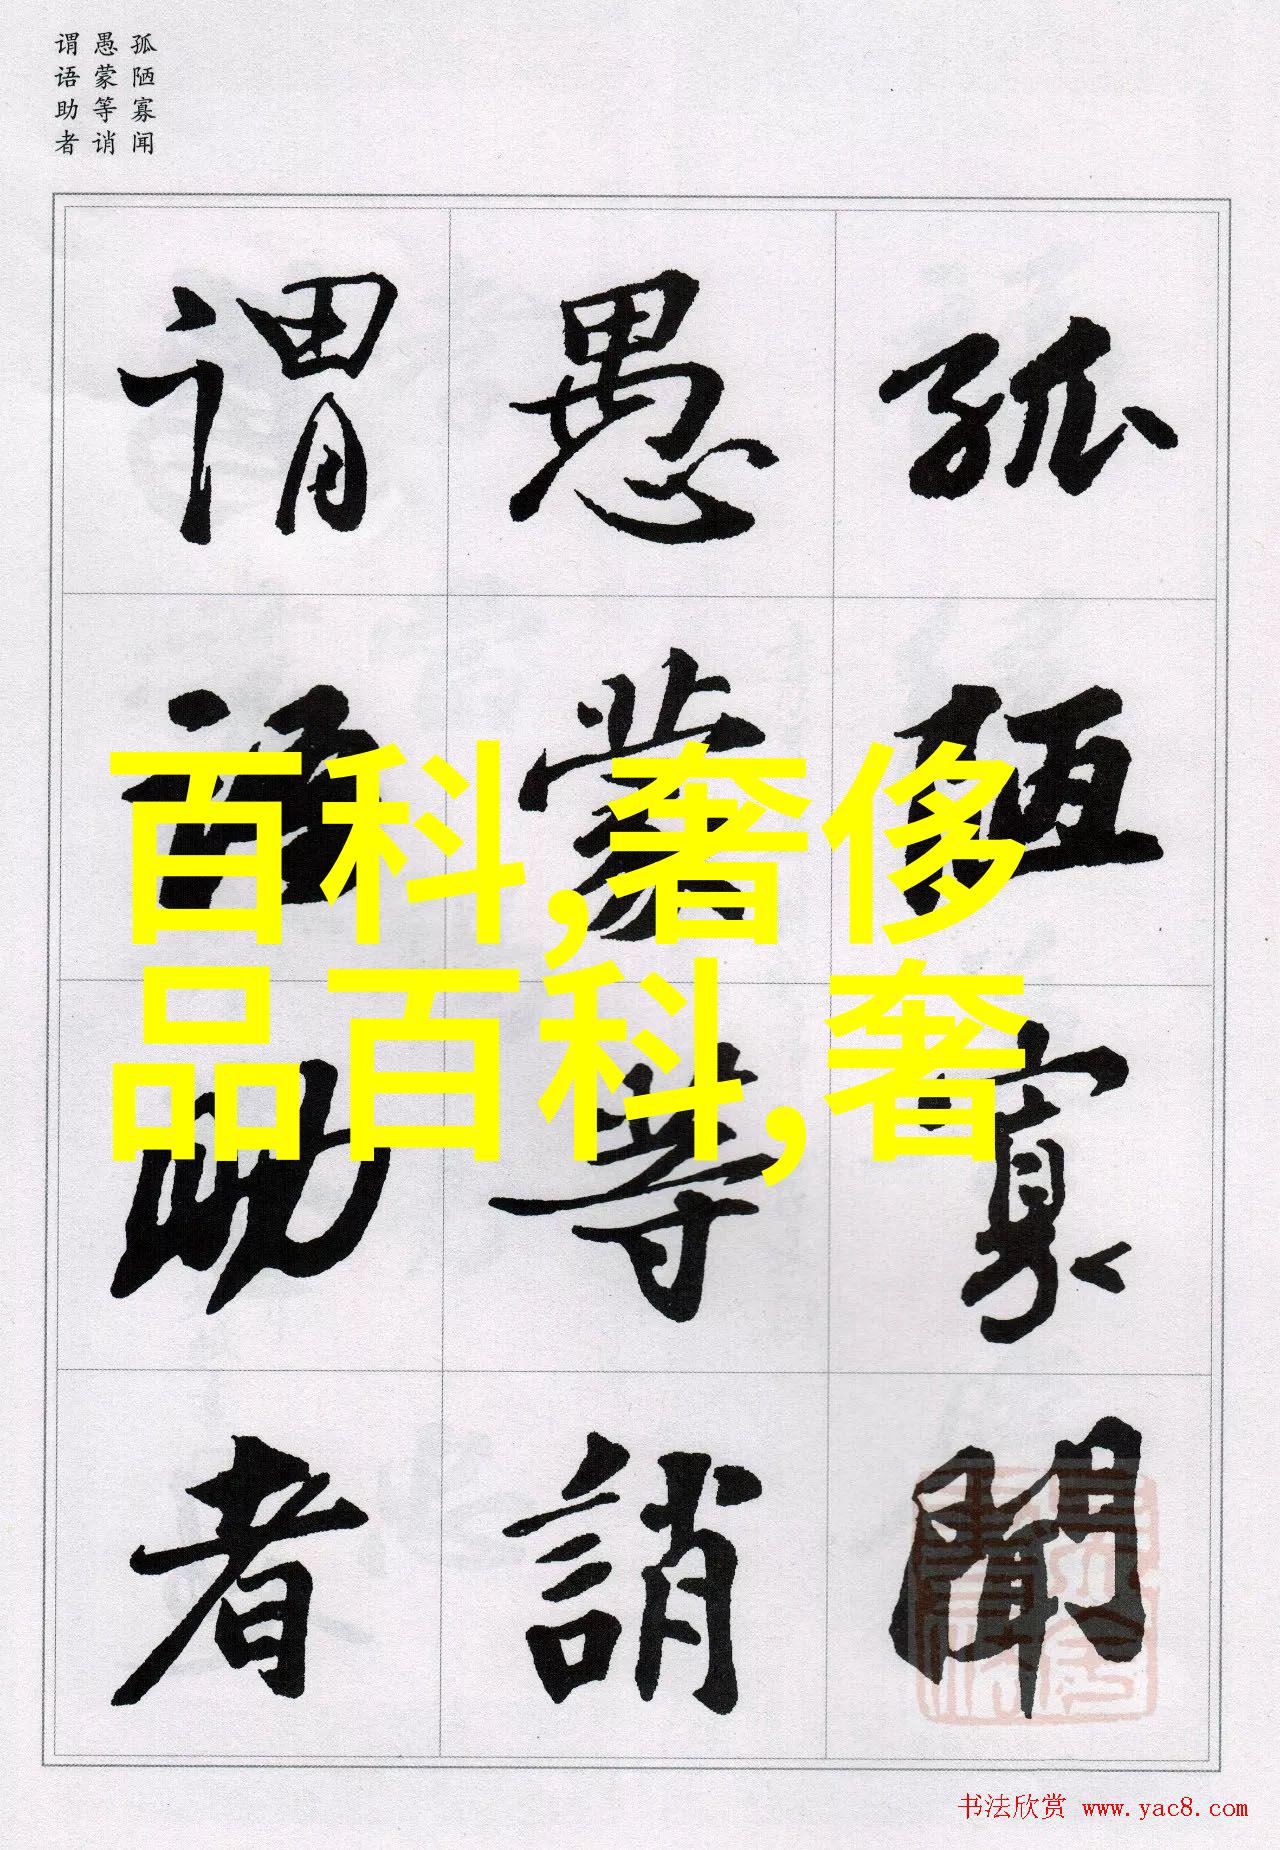 孤陋寡闻
愚蒙等诮
谓语助者
孤陋寡聞
愚蒙等誚
谓语助者
百科,奢侈
品百科,奢
书法欣赏 www.yac8.com